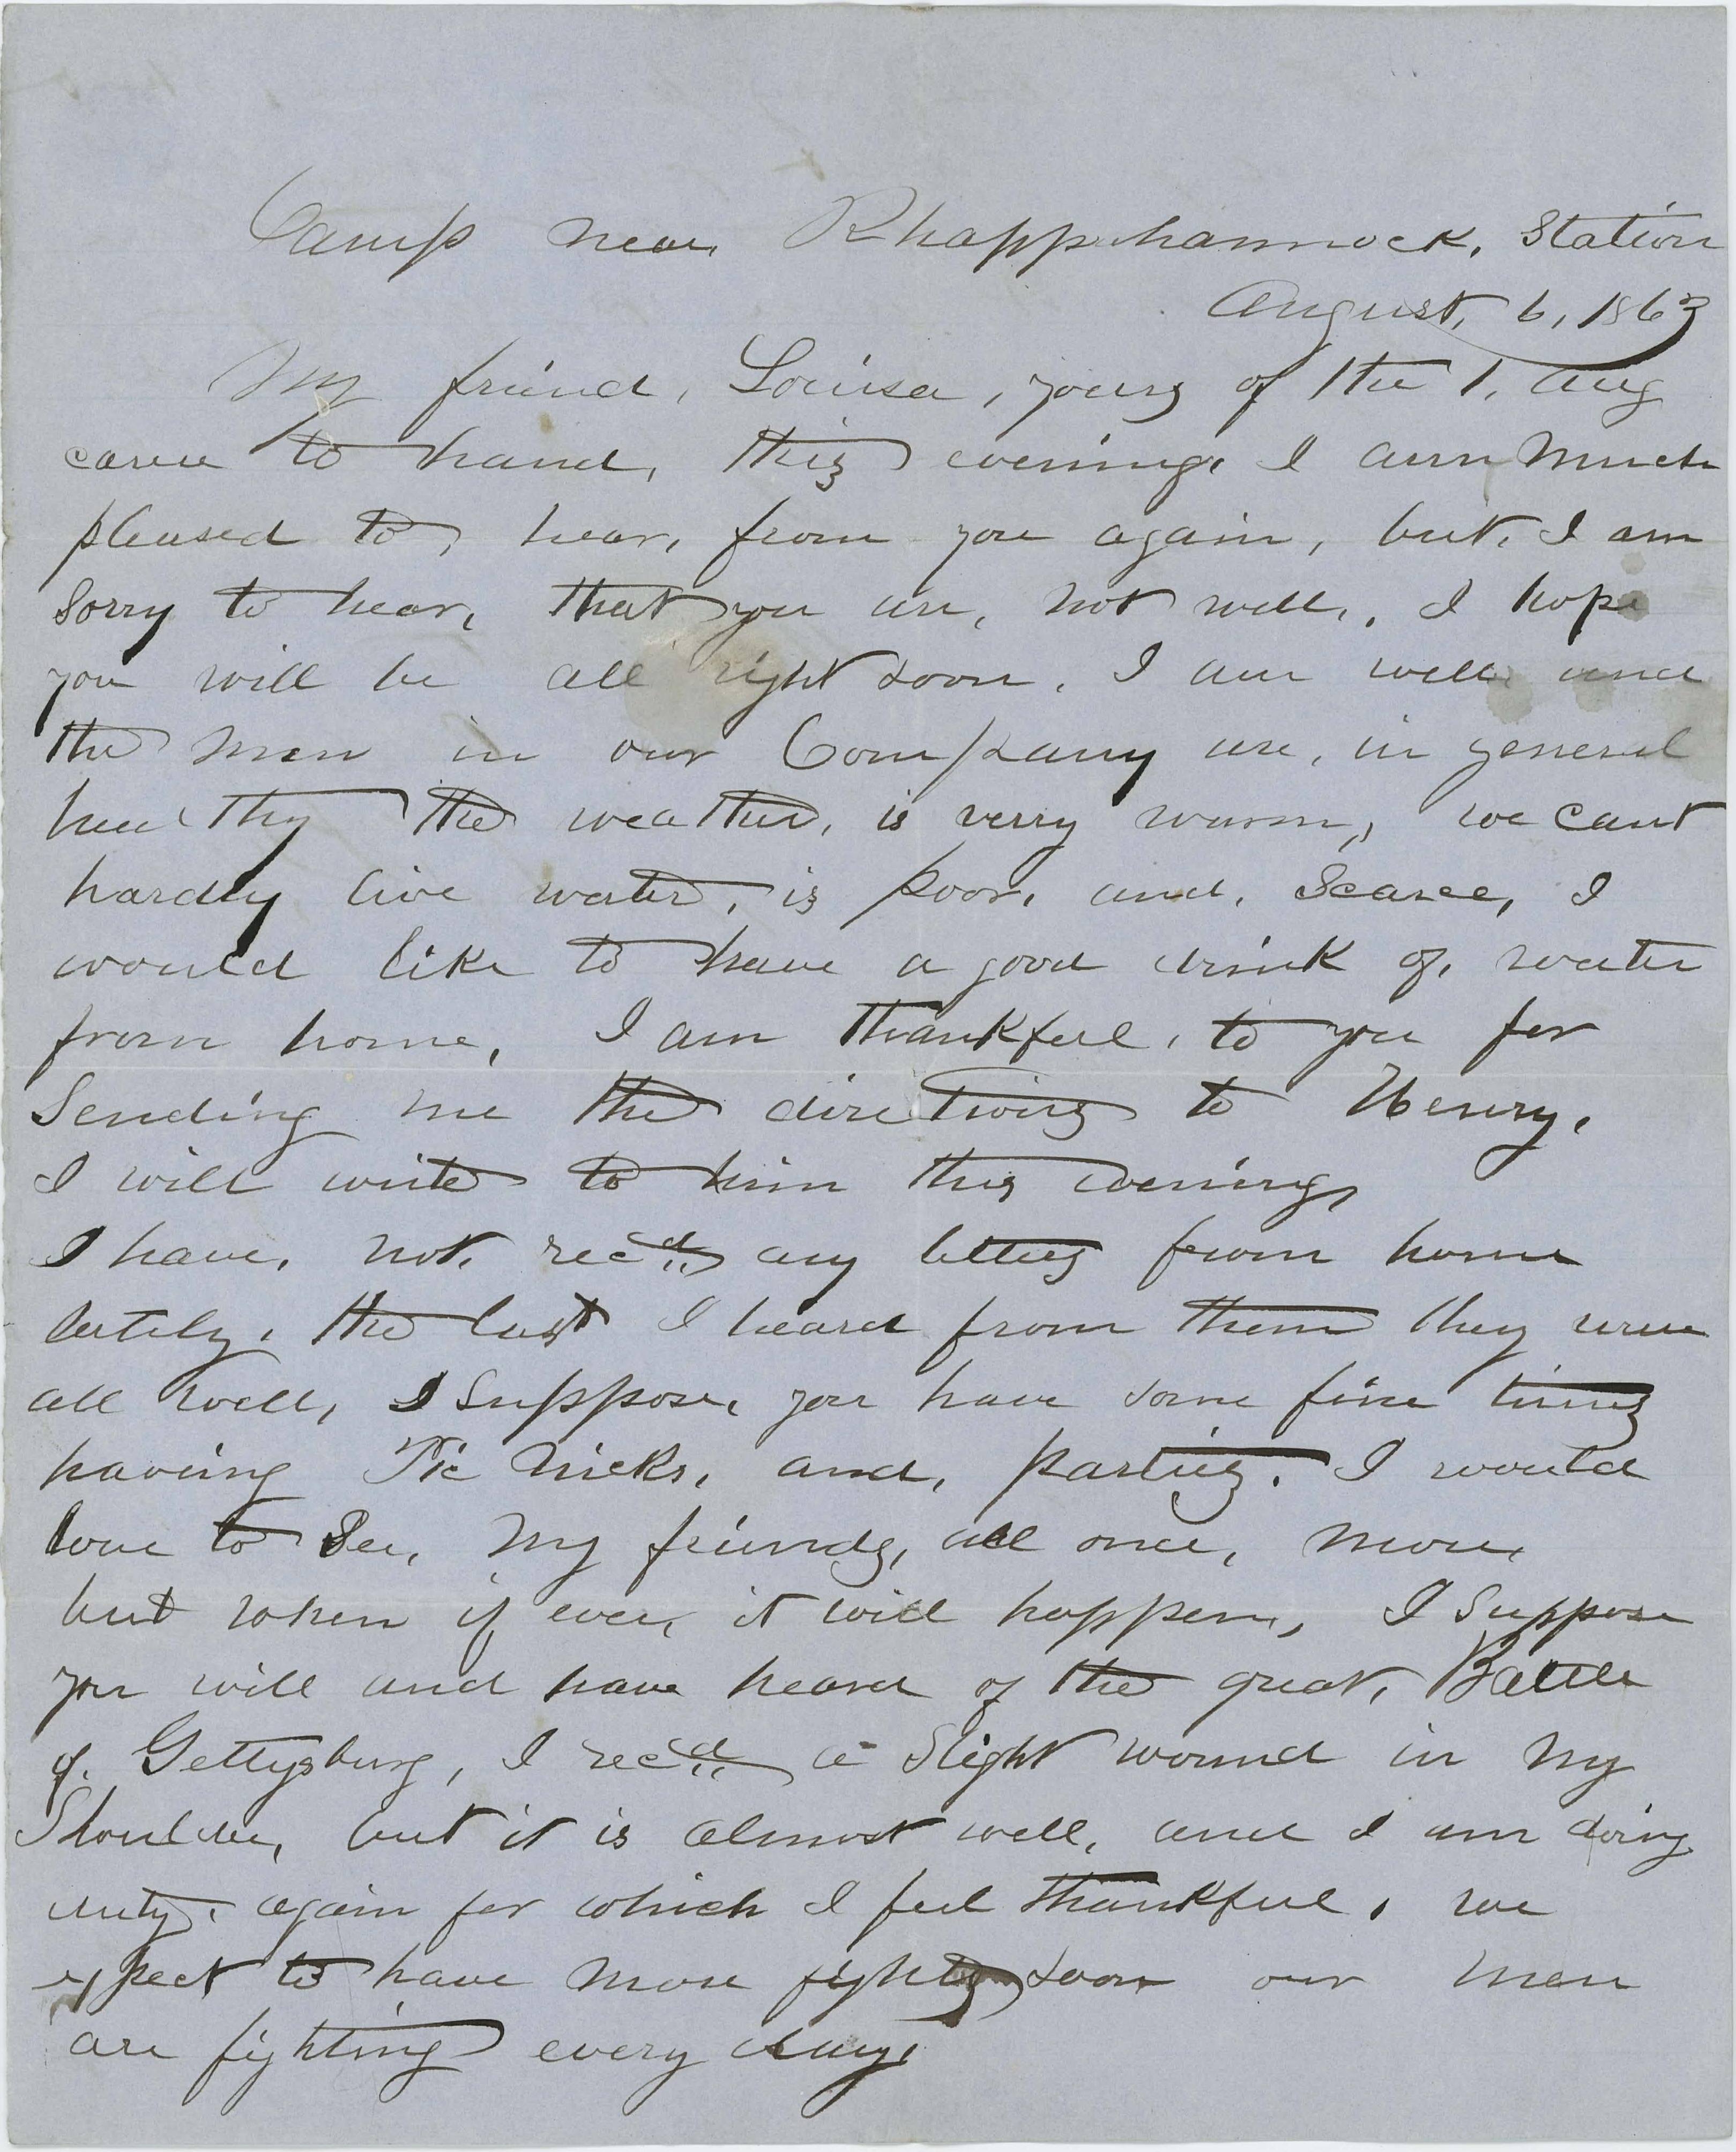 Camp near Rhapphannock, Station
August, 6, 1863
My friend, Louisa, yours of the 1, Aug
came to hand, this evening, I am Much
pleased to, hear, from you again, but, I am
Sorry to hear, that you are, not well,. I hope
you will be all right soon. I am well and
the Men in our Company are, in general
healthy the weather, is verry warm, we cant
hardly live water, is poor, and, Scarce, I
would like to have a good drink of, water
from home, I am thankful, to you for
Sending me the directions to Henry,
I will write to him this evening,
I have, not, recd. any letters from home
lately, the last I heard from them they were
all well, I Suppose, you have some fine times
having Pic Nicks, and, parties. I would
love to See, My friends, all once, more,
but when if ever, it will happen, I Suppose
you will and have heard of the great, Battle
of. Gettysburg, I recd. a slight wound in My
Shoulder, but it is almost well, and I am doing
duty, again for which I feel thankful, we
expect to have more fights soon our men
are fighting every day,